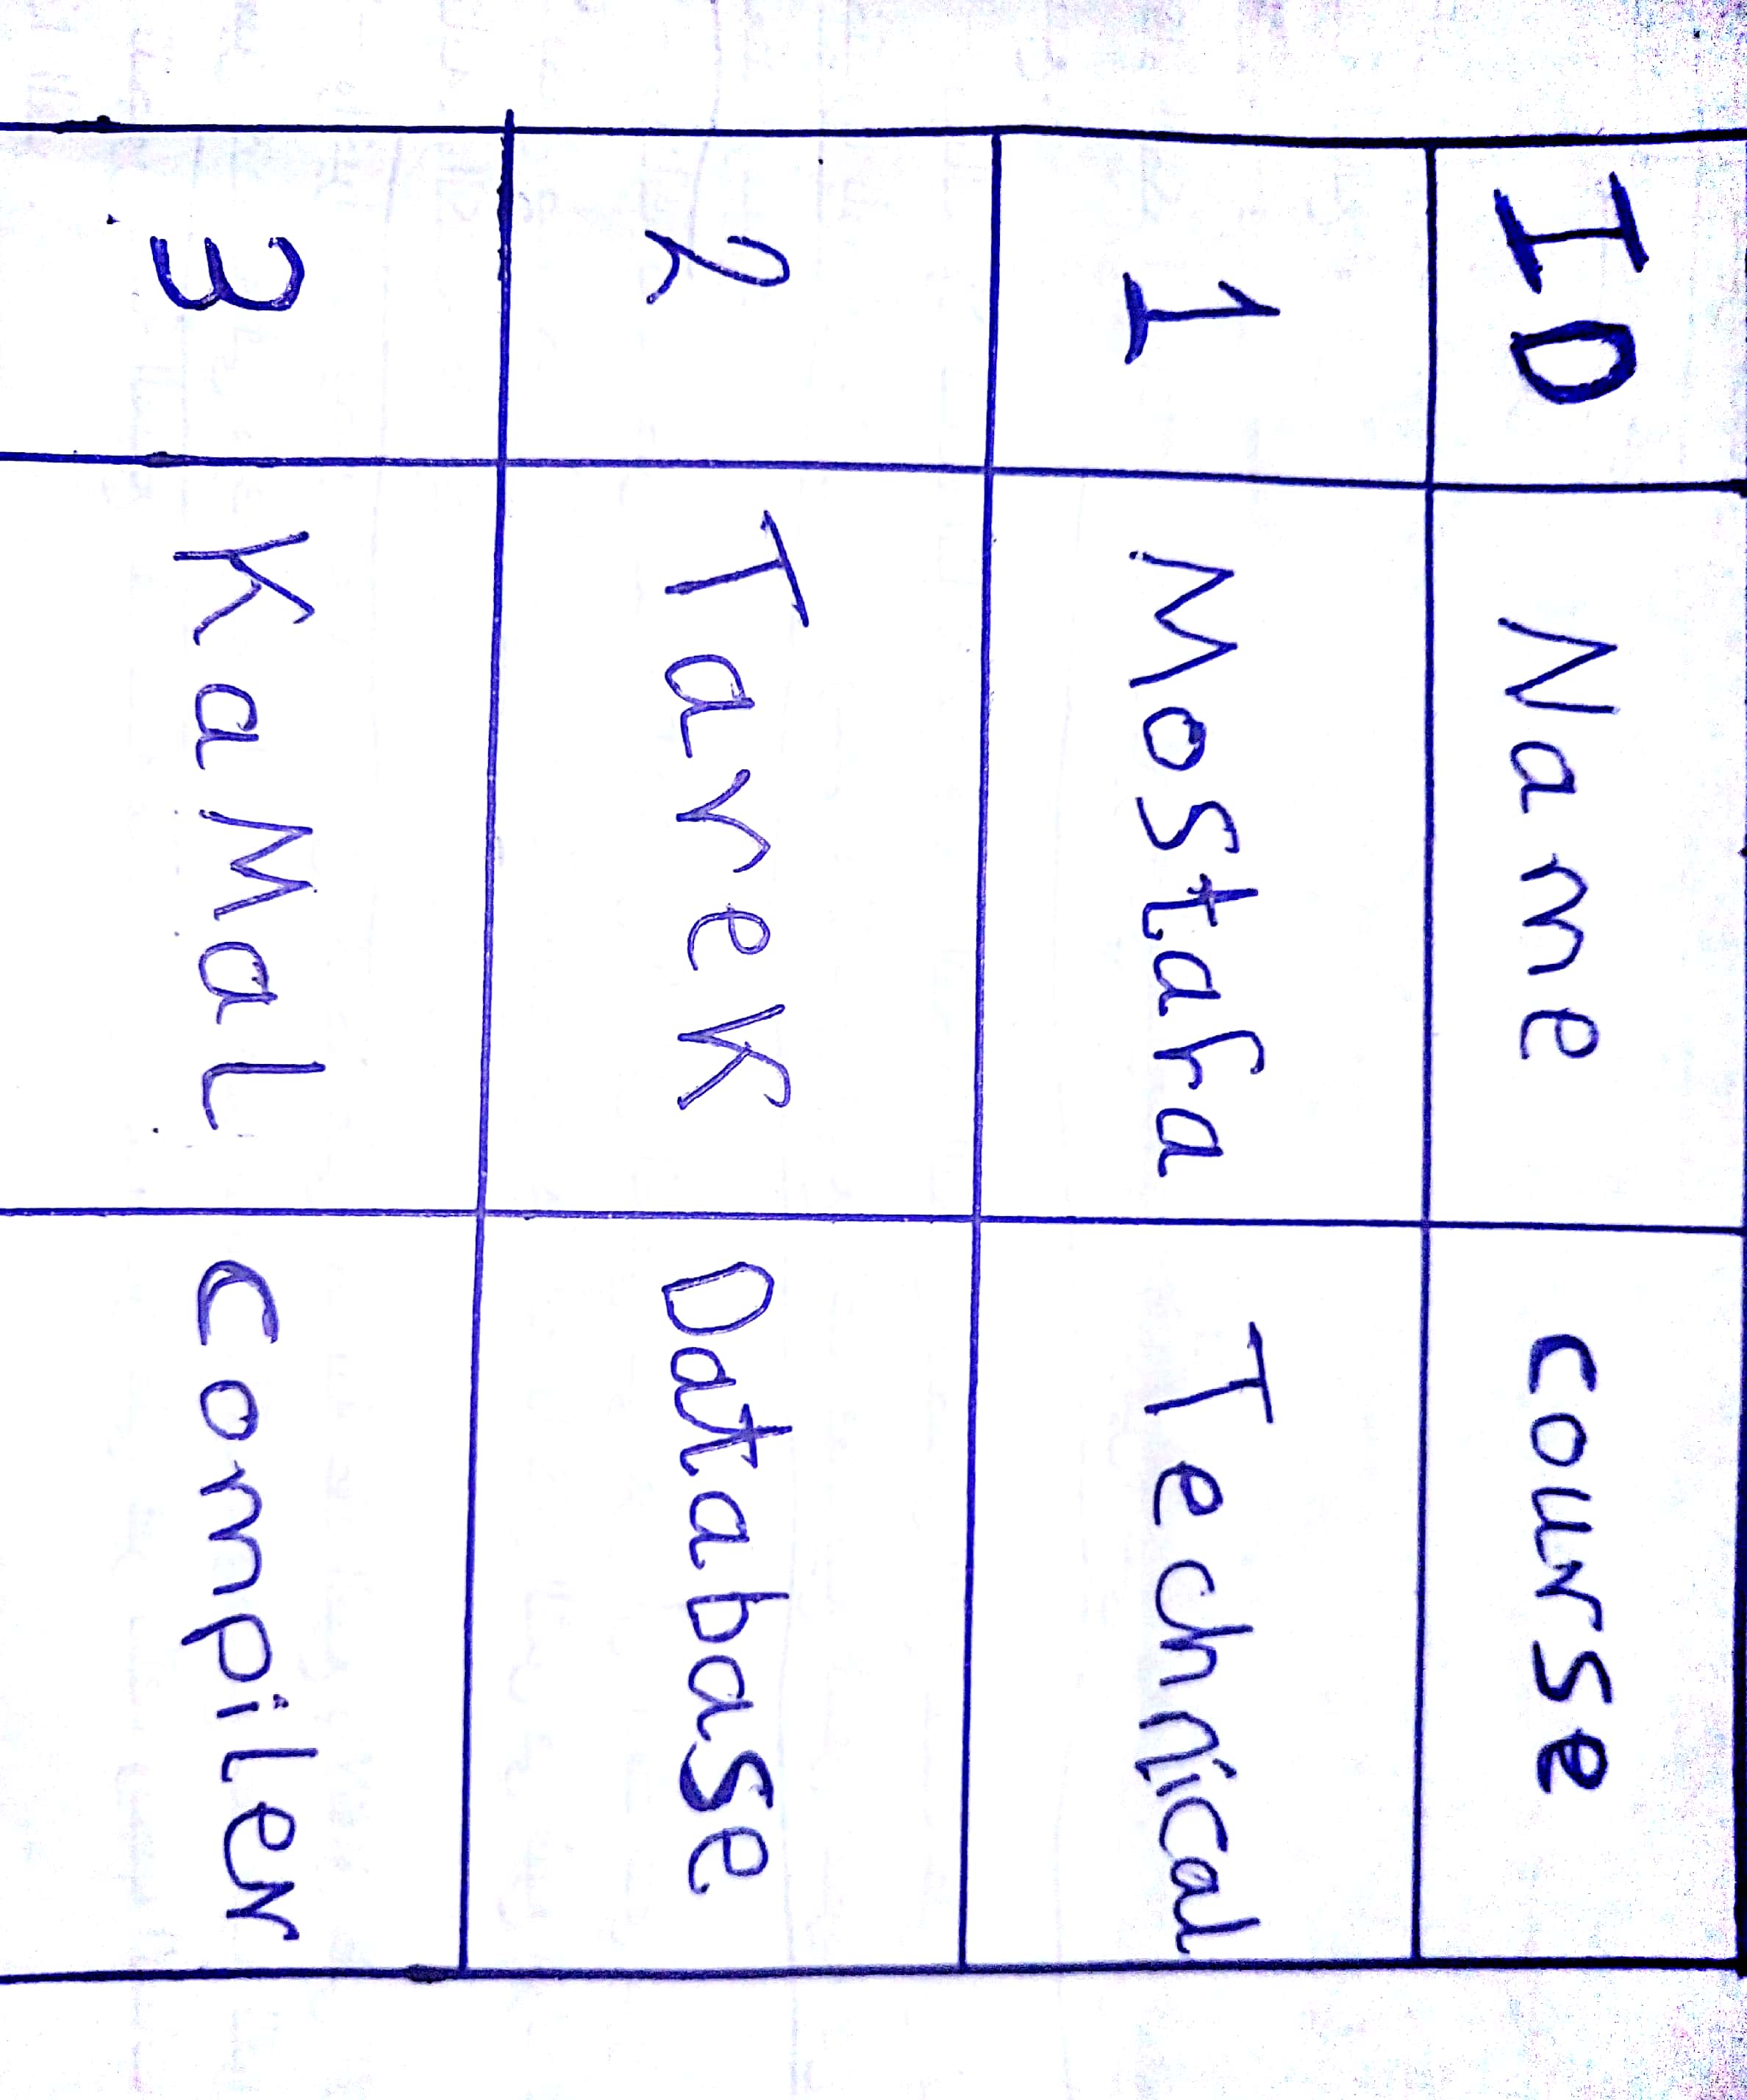 ID Name course
1 Mostafa Technical
2 Tarek Database
3 KaMal Compiler